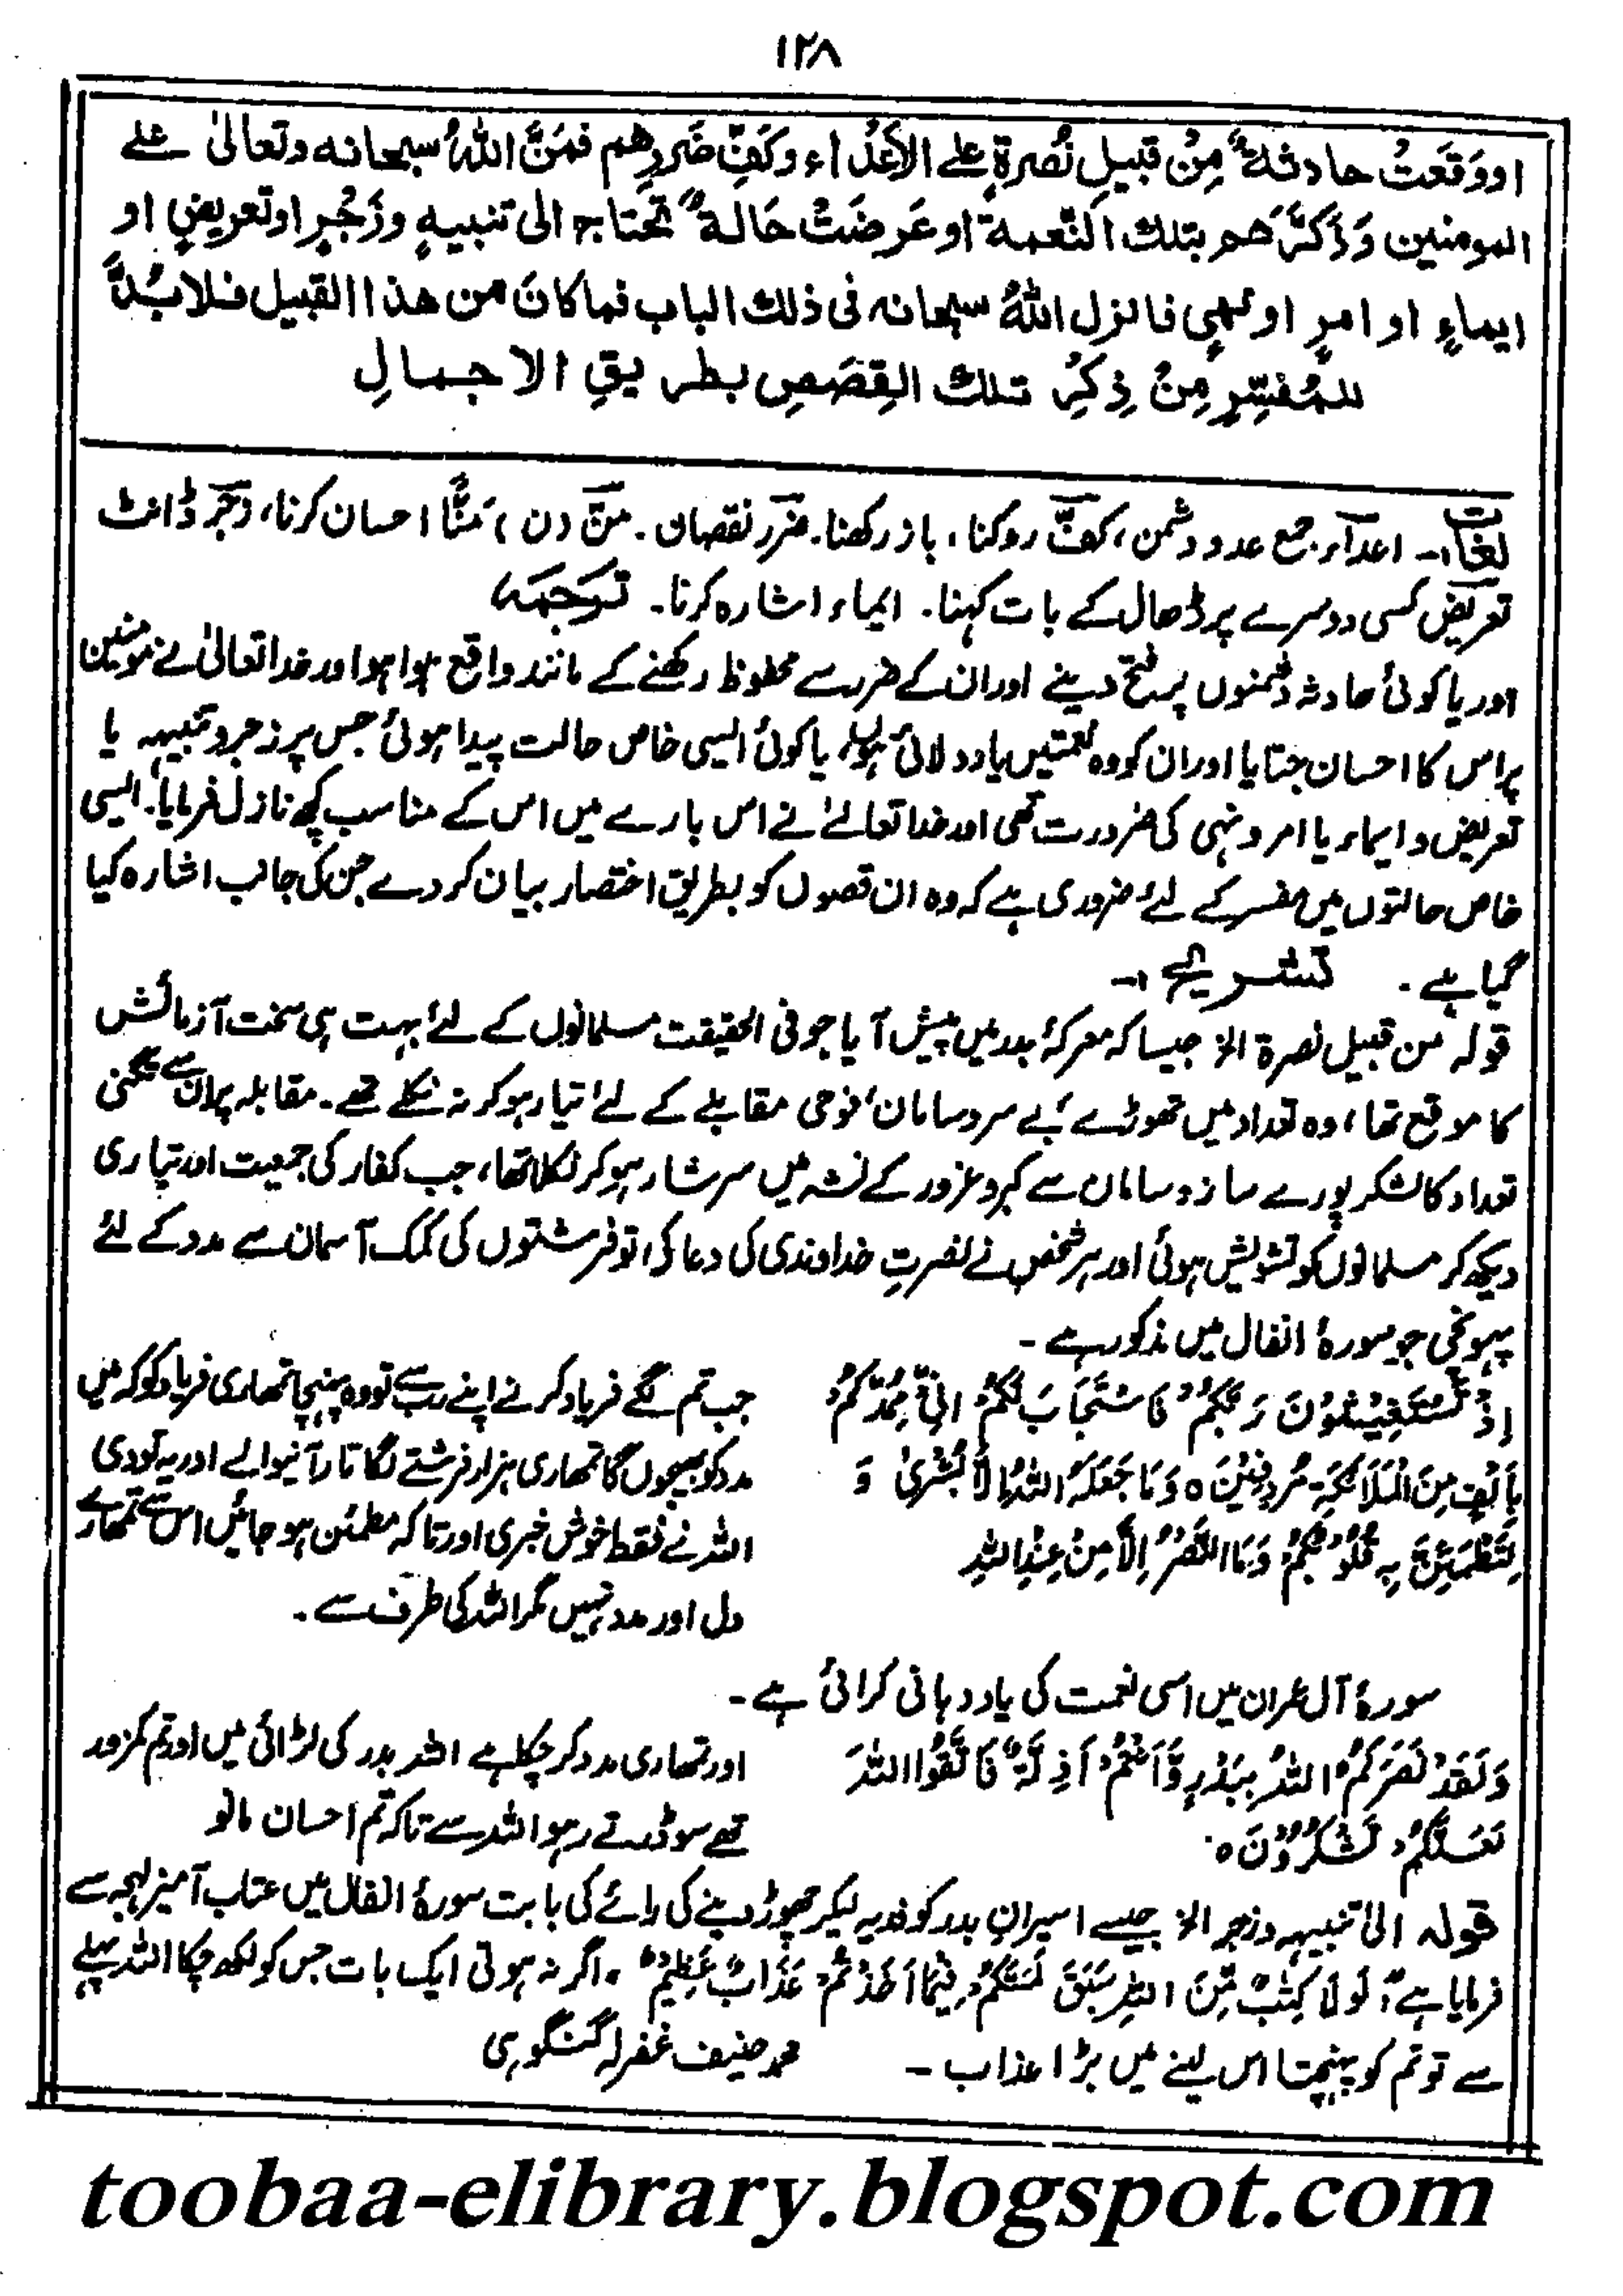 ۱۲۸
او وَقَعَتْ حادثةٌ مِنْ قبیلِ نُصرةٍ علے الاَعْدَاء وکَفِّ ضَررِهم فمَنَّ اللّٰهُ سبحانه وتعالیٰ علے
المومنین وَذَکَّرَهم بتلك النّعمة او عَرضَتْ حَالةٌ تحتاج الی تنبیهٍ وزَجْرٍ او تعریضٍ او
ایماءٍ او امرٍ او نهیٍ فانزل اللّٰهُ سبحانه فی ذلك الباب فما کانَ من هذا القبیل فلا بُدَّ
للمُفسّرِ مِنْ ذِکْرِ تلك القِصَصِ بطریقِ الاجمالِ
لغات:۔ اعدآء جمع عدو دشمن، کفّ روکنا، باز رکھنا۔ ضرر نقصان۔ منّ (ن) مَنًّا احسان کرنا، زجر ڈانٹ
تعریض کسی دوسرے پر ڈھال کے بات کہنا۔ ایماء اشارہ کرنا۔ ترجمہ
اور یا کوئی حادثہ دشمنوں پر فتح دینے اور ان کے ضرر سے محفوظ رکھنے کے مانند واقع ہوا ہو اور خدا تعالیٰ نے مومنین
پر اس کا احسان جتایا اور ان کو وہ نعمتیں یاد دلائی ہوں، یا کوئی ایسی خاص حالت پیدا ہوئی جس پر زجر و تنبیہہ یا
تعریض و ایماء یا امر و نہی کی ضرورت تھی اور خدا تعالےٰ نے اس بارے میں اس کے مناسب کچھ نازل فرمایا۔ ایسی
خاص حالتوں میں مفسر کے لئے ضروری ہے کہ وہ ان قصوں کو بطریق اختصار بیان کر دے جن کی جانب اشارہ کیا
گیا ہے۔ تشریح:۔
قولہ من قبیل نصرة الخ جیسا کہ معرکۂ بدر میں پیش آیا جو فی الحقیقت مسلمانوں کے لئے بہت ہی سخت آزمائش
کا موقع تھا، وہ تعداد میں تھوڑے، بے سر و سامان، فوجی مقابلے کے لئے تیار ہو کر نہ نکلے تھے۔ مقابلہ پر ان سے تگنی
تعداد کا لشکر پورے ساز و سامان سے کبر و غرور کے نشہ میں سرشار ہو کر نکلا تھا، جب کفار کی جمعیت اور تیاری
دیکھ کر مسلمانوں کو تشویش ہوئی اور ہر شخص نے نصرتِ خداوندی کی دعا کی، تو فرشتوں کی کمک آسمان سے مدد کے لئے
پہونچی جو سورۂ انفال میں مذکور ہے۔
اِذْ تَسْتَغِیْثُوْنَ رَبَّکُمْ فَاسْتَجَابَ لَکُمْ اَنِّیْ مُمِدُّکُمْ
بِاَلْفٍ مِنَ الْمَلَائِکَةِ مُرْدِفِیْنَ ٥ وَمَا جَعَلَهُ اللّٰهُ اِلَّا بُشْریٰ وَ
لِتَطْمَئِنَّ بِهٖ قُلُوْبُکُمْ وَمَا النَّصْرُ اِلَّا مِنْ عِنْدِ اللّٰهِ
جب تم لگے فریاد کرنے اپنے رب سے تو وہ پہنچا تمھاری فریاد کو کہ میں
مدد کو بھیجوں گا تمھاری ہزار فرشتے لگا تار آنیوالے اور یہ تو دی
اللہ نے فقط خوش خبری اور تاکہ مطمئن ہو جائیں اس سے تمھارے
دل اور مدد نہیں مگر اللہ کی طرف سے۔
سورۂ آل عمران میں اسی نعمت کی یاد دہانی کرائی ہے۔
وَلَقَدْ نَصَرَکُمُ اللّٰهُ بِبَدْرٍ وَّاَنْتُمْ اَذِلَّةٌ فَاتَّقُوا اللّٰهَ
لَعَلَّکُمْ تَشْکُرُوْنَ ٥
اور تمھاری مدد کر چکا ہے اللہ بدر کی لڑائی میں اور تم کمزور
تھے سو ڈرتے رہو اللہ سے تاکہ تم احسان مانو
قولہ الیٰ تنبیہہ وزجر الخ جیسے اسیرانِ بدر کو فدیہ لیکر چھوڑ دینے کی رائے کی بابت سورۂ انفال میں عتاب آمیز لہجہ سے
فرمایا ہے، لَوْلَا کِتٰبٌ مِّنَ اللّٰهِ سَبَقَ لَمَسَّکُمْ فِیْمَا اَخَذْتُمْ عَذَابٌ عَظِیْمٌ، اگر نہ ہوتی ایک بات جس کو لکھ چکا اللہ پہلے
سے تو تم کو پہنچتا اس لینے میں بڑا عذاب۔ محمد حنیف غفرلہ گنگوہی
toobaa-elibrary.blogspot.com